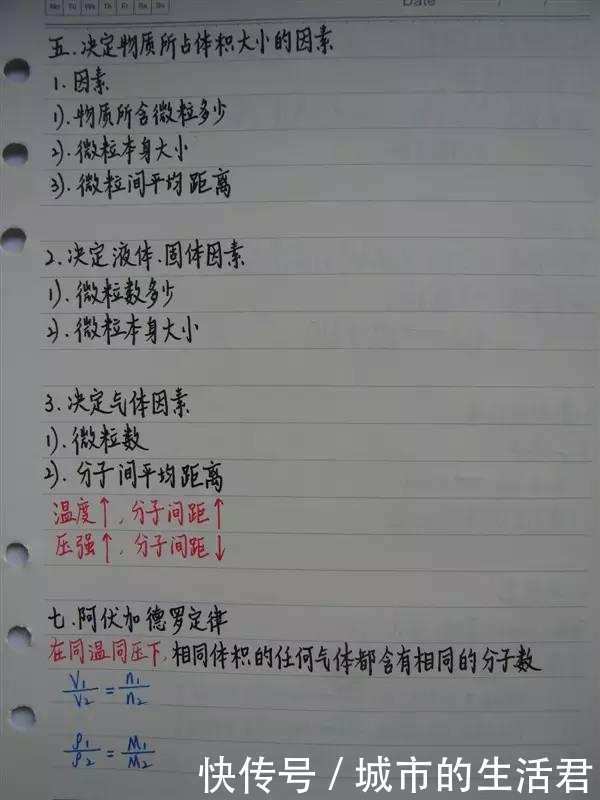 No Tu We Th Fr Sa Su
Date / /
五.决定物质所占体积大小的因素
1.因素
1).物质所含微粒多少
2).微粒本身大小
3).微粒间平均距离
2.决定液体.固体因素
1).微粒数多少
2).微粒本身大小
3.决定气体因素
1).微粒数
2).分子间平均距离
温度↑,分子间距↑
压强↑,分子间距↓
七.阿伏加德罗定律
在同温同压下,相同体积的任何气体都含有相同的分子数
V1/V2=n1/n2
ρ1/ρ2=M1/M2
快传号/城市的生活君